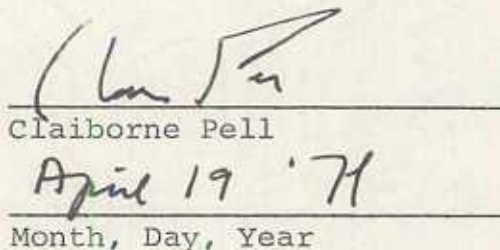 Claiborne Pell
April 19 '71
Month, Day, Year